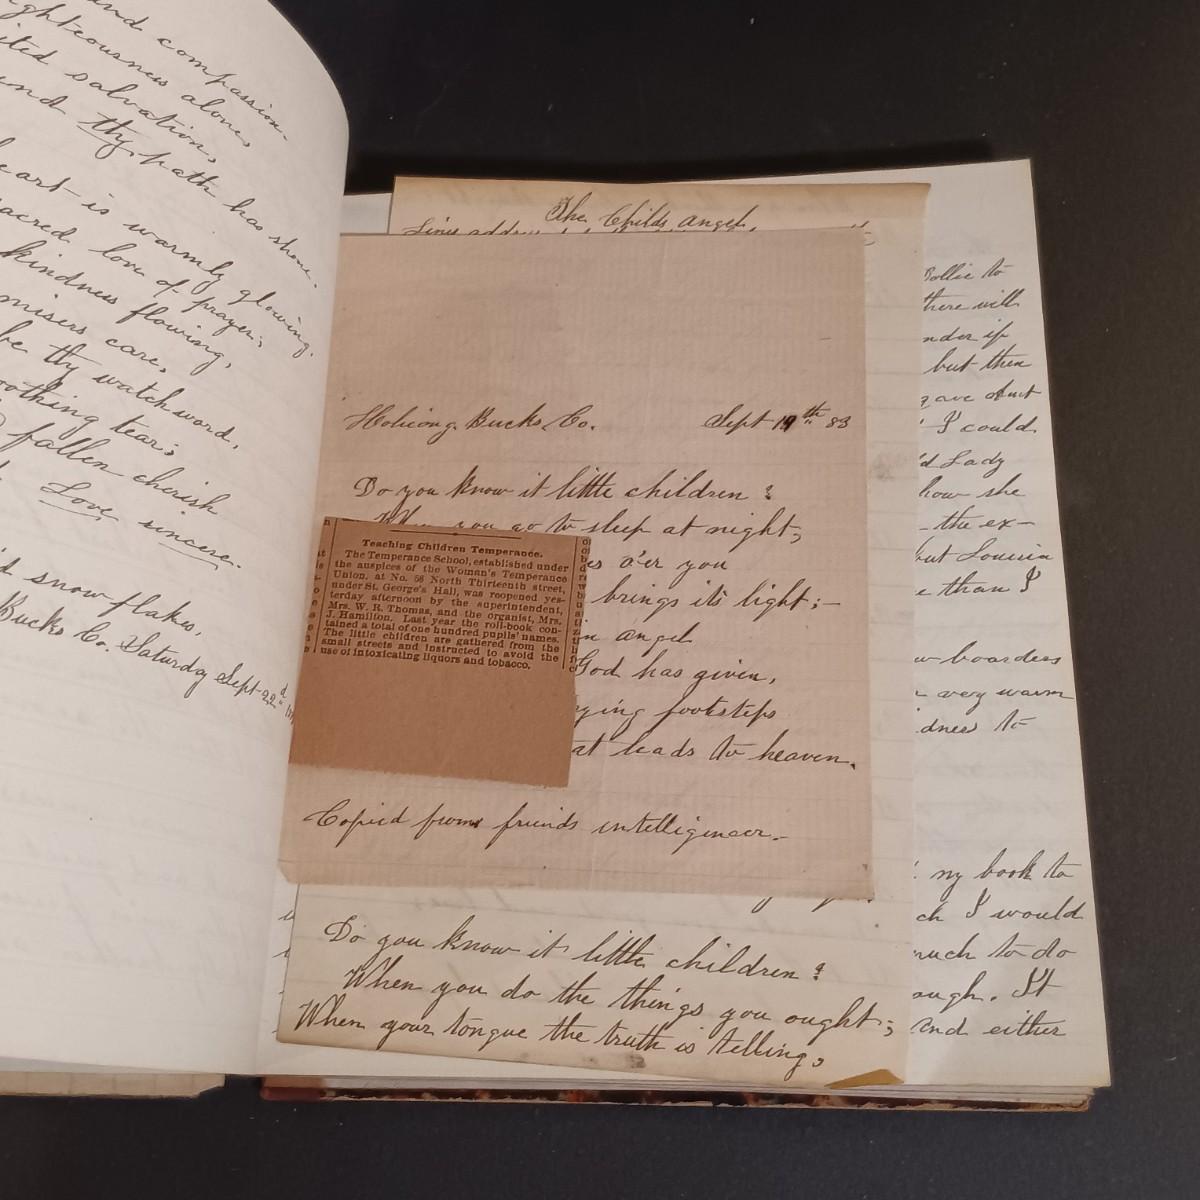 and compassion.
righteousness alone,
salvation,
and thy path has shone.
heart is warmly glowing,
sacred love of prayer;
kindness flowing,
misers care,
be thy watchword,
soothing tear;
fallen cherish
Love sincere.
snow flakes,
Bucks Co. Saturday Sept 22d
The Childs angel.
Lines
Holicong. Bucks. Co. Sept 19th 83
Do you know it little children?
When you go to sleep at night;
o'er you
brings its light;—
angel
God has given,
footsteps
leads to heaven.
Copied from friends intelligencer.—
Teaching Children Temperance.
The Temperance School, established under
the auspices of the Woman's Temperance
Union, at No. 58 North Thirteenth street,
under St. George's Hall, was reopened yes-
terday afternoon by the superintendent,
Mrs. W. R. Thomas, and the organist, Mrs.
J. Hamilton. Last year the roll-book con-
tained a total of one hundred pupils' names.
The little children are gathered from the
small streets and instructed to avoid the
use of intoxicating liquors and tobacco.
Do you know it little children?
When you do the things you ought;
When your tongue the truth is telling,
to
there will
if
but then
gave Aunt
I could
Lady
how she
the ex-
but Louisa
than I
boarders
very warm
to
my book to
I would
much to do
It
and either